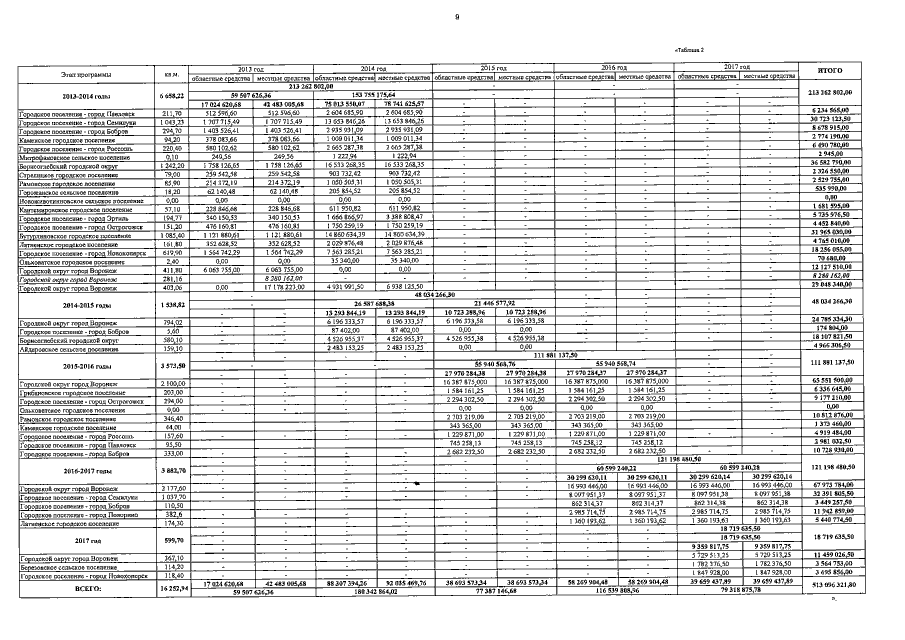 9
«Таблица 2
Этап программы кв.м. 2013 год 2014 год 2015 год 2016 год 2017 год ИТОГО
областные средства местные средства областные средства местные средства областные средства местные средства областные средства местные средства областные средства местные средства
213 262 802,00
2013-2014 годы 6 658,22 59 507 626,36 153 755 175,64 - - - - - - 213 262 802,00
17 024 620,68 42 483 005,68 75 013 550,07 78 741 625,57 - - - - - -
Городское поселение - город Павловск 211,70 512 596,60 512 596,60 2 604 685,90 2 604 685,90 - - - - - - 6 234 565,00
Городское поселение - город Семилуки 1 043,23 1 707 715,49 1 707 715,49 13 653 846,26 13 653 846,26 - - - - - - 30 723 123,50
Городское поселение - город Бобров 294,70 1 403 526,41 1 403 526,41 2 935 931,09 2 935 931,09 - - - - - - 8 678 915,00
Каменское городское поселение 94,20 378 083,66 378 083,66 1 009 011,34 1 009 011,34 - - - - - - 2 774 190,00
Городское поселение - город Россошь 220,40 580 102,62 580 102,62 2 665 287,38 2 665 287,38 - - - - - - 6 490 780,00
Митрофановское сельское поселение 0,10 249,56 249,56 1 222,94 1 222,94 - - - - - - 2 945,00
Борисоглебский городской округ 1 758 126,65 1 758 126,65 16 533 268,35 16 533 268,35 - - - - - - 36 582 790,00
Стрелицкое городское поселение 79,00 259 542,58 259 542,58 903 732,42 903 732,42 - - - - - - 2 326 550,00
Рамонское городское поселение 85,90 214 372,19 214 372,19 1 050 505,31 1 050 505,31 - - - - - - 2 529 755,00
Горожанское сельское поселение 18,20 62 140,48 62 140,48 205 854,52 205 854,52 - - - - - - 535 990,00
Новоживотинновское сельское поселение 0,00 0,00 0,00 0,00 0,00 - - - - - - 0,00
Кантемировское городское поселение 57,10 228 846,68 228 846,68 611 950,82 611 950,82 - - - - - - 1 681 595,00
Городское поселение - город Эртиль 194,77 340 150,53 340 150,53 1 666 866,97 3 388 808,47 - - - - - - 5 735 976,50
Городское поселение - город Острогожск 151,20 476 160,81 476 160,81 1 750 259,19 1 750 259,19 - - - - - - 4 452 840,00
Бутурлиновское городское поселение 1 085,40 1 121 880,61 1 121 880,61 14 860 634,39 14 860 634,39 - - - - - - 31 965 030,00
Латненское городское поселение 161,80 352 628,52 352 628,52 2 029 876,48 2 029 876,48 - - - - - - 4 765 010,00
Городское поселение - город Новохоперск 619,90 1 564 742,29 1 564 742,29 7 563 285,21 7 563 285,21 - - - - - - 18 256 055,00
Ольховатское городское поселение 2,40 0,00 0,00 35 340,00 35 340,00 - - - - - - 70 680,00
Городской округ город Воронеж 411,80 6 063 755,00 6 063 755,00 0,00 0,00 - - - - - - 12 127 510,00
Городской округ город Воронеж 281,16 8 280 162,00 - - - - - - 8 280 162,00
Городской округ город Воронеж 403,06 0,00 17 178 223,00 4 931 991,50 6 938 125,50 - - - - - - 29 048 340,00
48 034 266,30
2014-2015 годы 1 538,82 - - 26 587 688,38 21 446 577,92 - - - - 48 034 266,30
- - 13 293 844,19 13 293 844,19 10 723 288,96 10 723 288,96 - - - -
Городской округ город Воронеж 794,02 - - 6 196 333,57 6 196 333,57 6 196 333,58 6 196 333,58 - - - - 24 785 334,30
Городское поселение - город Бобров 5,60 - - 87 402,00 87 402,00 0,00 0,00 - - - - 174 804,00
Борисоглебский городской округ 580,10 - - 4 526 955,37 4 526 955,37 4 526 955,38 4 526 955,38 - - - - 18 107 821,50
Айдаровское сельское поселение 159,10 - - 2 483 153,25 2 483 153,25 0,00 0,00 - - - - 4 966 306,50
111 881 137,50
2015-2016 годы 3 573,50 - - - - 55 940 568,76 55 940 568,74 - - 111 881 137,50
- - - - 27 970 284,38 27 970 284,38 27 970 284,37 27 970 284,37 - -
Городской округ город Воронеж 2 100,00 - - - - 16 387 875,000 16 387 875,000 16 387 875,00 16 387 875,00 - - 65 551 500,00
Грибановское городское поселение 203,00 - - - - 1 584 161,25 1 584 161,25 1 584 161,25 1 584 161,25 - - 6 336 645,00
Городское поселение - город Острогожск 294,00 - - - - 2 294 302,50 2 294 302,50 2 294 302,50 2 294 302,50 - - 9 177 210,00
Ольховатское городское поселение 0,00 - - - - 0,00 0,00 0,00 0,00 - - 0,00
Рамонское городское поселение 346,40 - - - - 2 703 219,00 2 703 219,00 2 703 219,00 2 703 219,00 - - 10 812 876,00
Каменское городское поселение 44,00 - - - - 343 365,00 343 365,00 343 365,00 343 365,00 - - 1 373 460,00
Городское поселение - город Россошь 157,60 - - - - 1 229 871,00 1 229 871,00 1 229 871,00 1 229 871,00 - - 4 919 484,00
Городское поселение - город Павловск 95,50 - - - - 745 258,13 745 258,13 745 258,12 745 258,12 - - 2 981 032,50
Городское поселение - город Бобров 333,00 - - - - 2 682 232,50 2 682 232,50 2 682 232,50 2 682 232,50 - - 10 728 930,00
121 198 480,50
2016-2017 годы 3 882,70 - - - - - - 60 599 240,22 60 599 240,28 121 198 480,50
- - - - - - 30 299 620,11 30 299 620,11 30 299 620,14 30 299 620,14
Городской округ город Воронеж 2 177,60 - - - - - - 16 993 446,00 16 993 446,00 16 993 446,00 16 993 446,00 67 973 784,00
Городское поселение - город Семилуки 1 037,70 - - - - - - 8 097 951,37 8 097 951,37 8 097 951,38 8 097 951,38 32 391 805,50
Городское поселение - город Бобров 110,50 - - - - - - 862 314,37 862 314,37 862 314,38 862 314,38 3 449 257,50
Городское поселение - город Поворино 382,6 - - - - - - 2 985 714,75 2 985 714,75 2 985 714,75 2 985 714,75 11 942 859,00
Латненское городское поселение 174,30 - - - - - - 1 360 193,62 1 360 193,62 1 360 193,63 1 360 193,63 5 440 774,50
18 719 635,50
2017 год 599,70 - - - - - - - - 18 719 635,50 18 719 635,50
- - - - - - - - 9 359 817,75 9 359 817,75
Городской округ город Воронеж 367,10 - - - - - - - - 5 729 513,25 5 729 513,25 11 459 026,50
Березовское сельское поселение 114,20 - - - - - - - - 1 782 376,50 1 782 376,50 3 564 753,00
Городское поселение - город Новохоперск 118,40 - - - - - - - - 1 847 928,00 1 847 928,00 3 695 856,00
ВСЕГО: 16 252,94 17 024 620,68 42 483 005,68 88 307 394,26 92 035 469,76 38 693 573,34 38 693 573,34 58 269 904,48 58 269 904,48 39 659 437,89 39 659 437,89 513 096 321,80
59 507 626,36 180 342 864,02 77 387 146,68 116 539 808,96 79 318 875,78